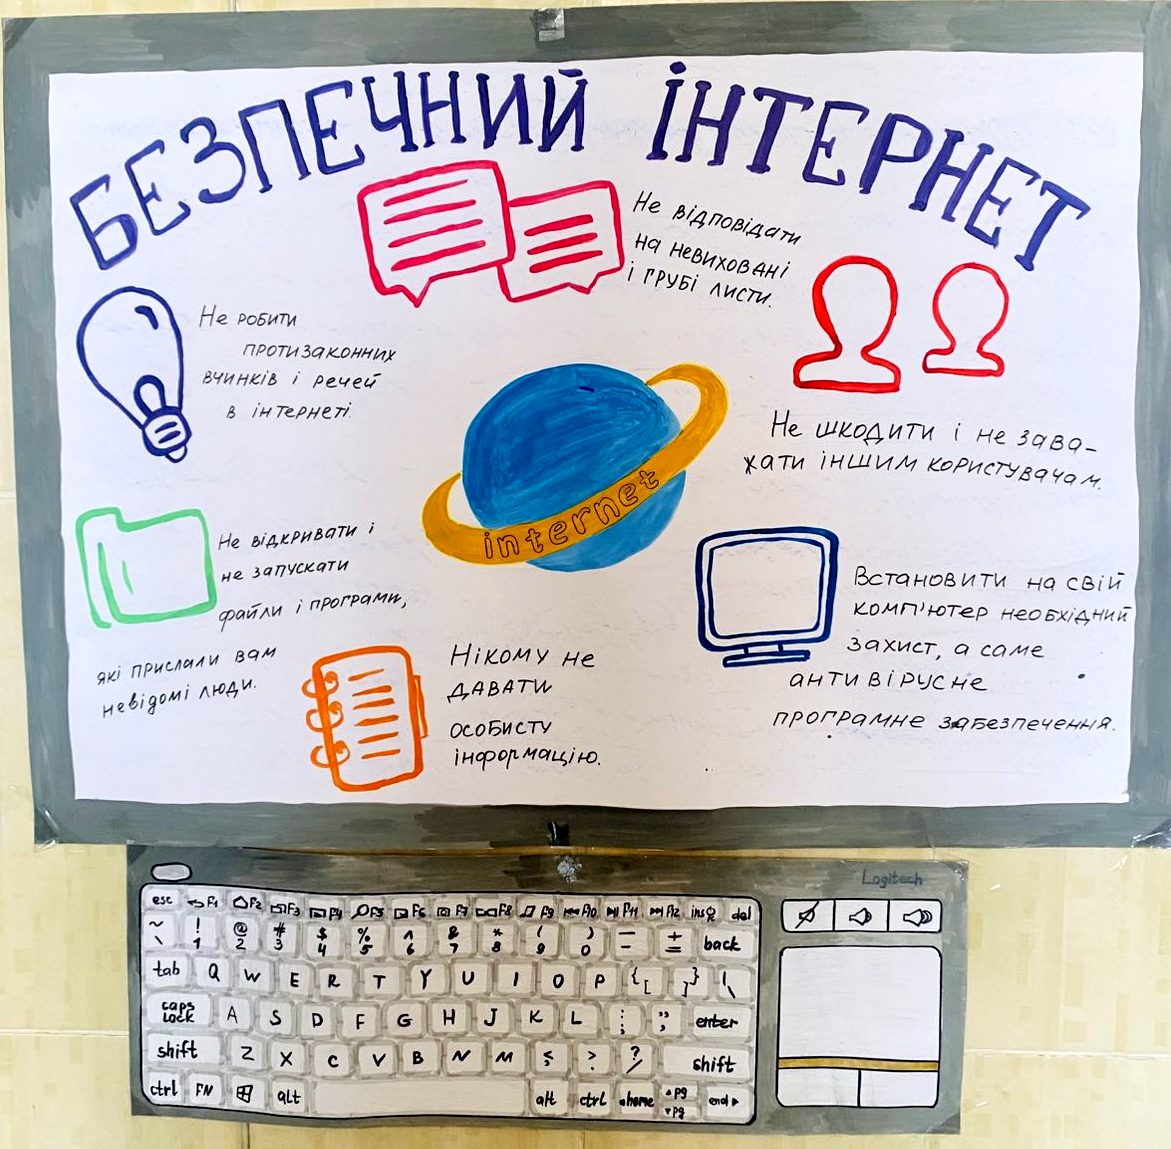 БЕЗПЕЧНИЙ ІНТЕРНЕТ
Не відповідати
на невиховані
і грубі листи.
Не робити
протизаконних
вчинків і речей
в інтернеті
Не шкодити і не зава-
жати іншим користувачам.
internet
Не відкривати і
не запускати
файли і програми,
які прислали вам
невідомі люди.
Встановити на свій
комп'ютер необхідний
захист, а саме
антивірусне
програмне забезпечення.
Нікому не
давати
особисту
інформацію.
Logitech
esc F1 F2 F3 F4 F5 F6 F7 F8 F9 F10 F11 F12 ins del
~ ! @ # $ % ^ & * ( ) _ +
\ 1 2 3 4 5 6 7 8 9 0 - = back
tab Q W E R T Y U I O P { [ } ] | \
caps lock A S D F G H J K L : ; " , enter
shift Z X C V B N M < , > . ? / shift
ctrl FN alt alt ctrl home pg pg end